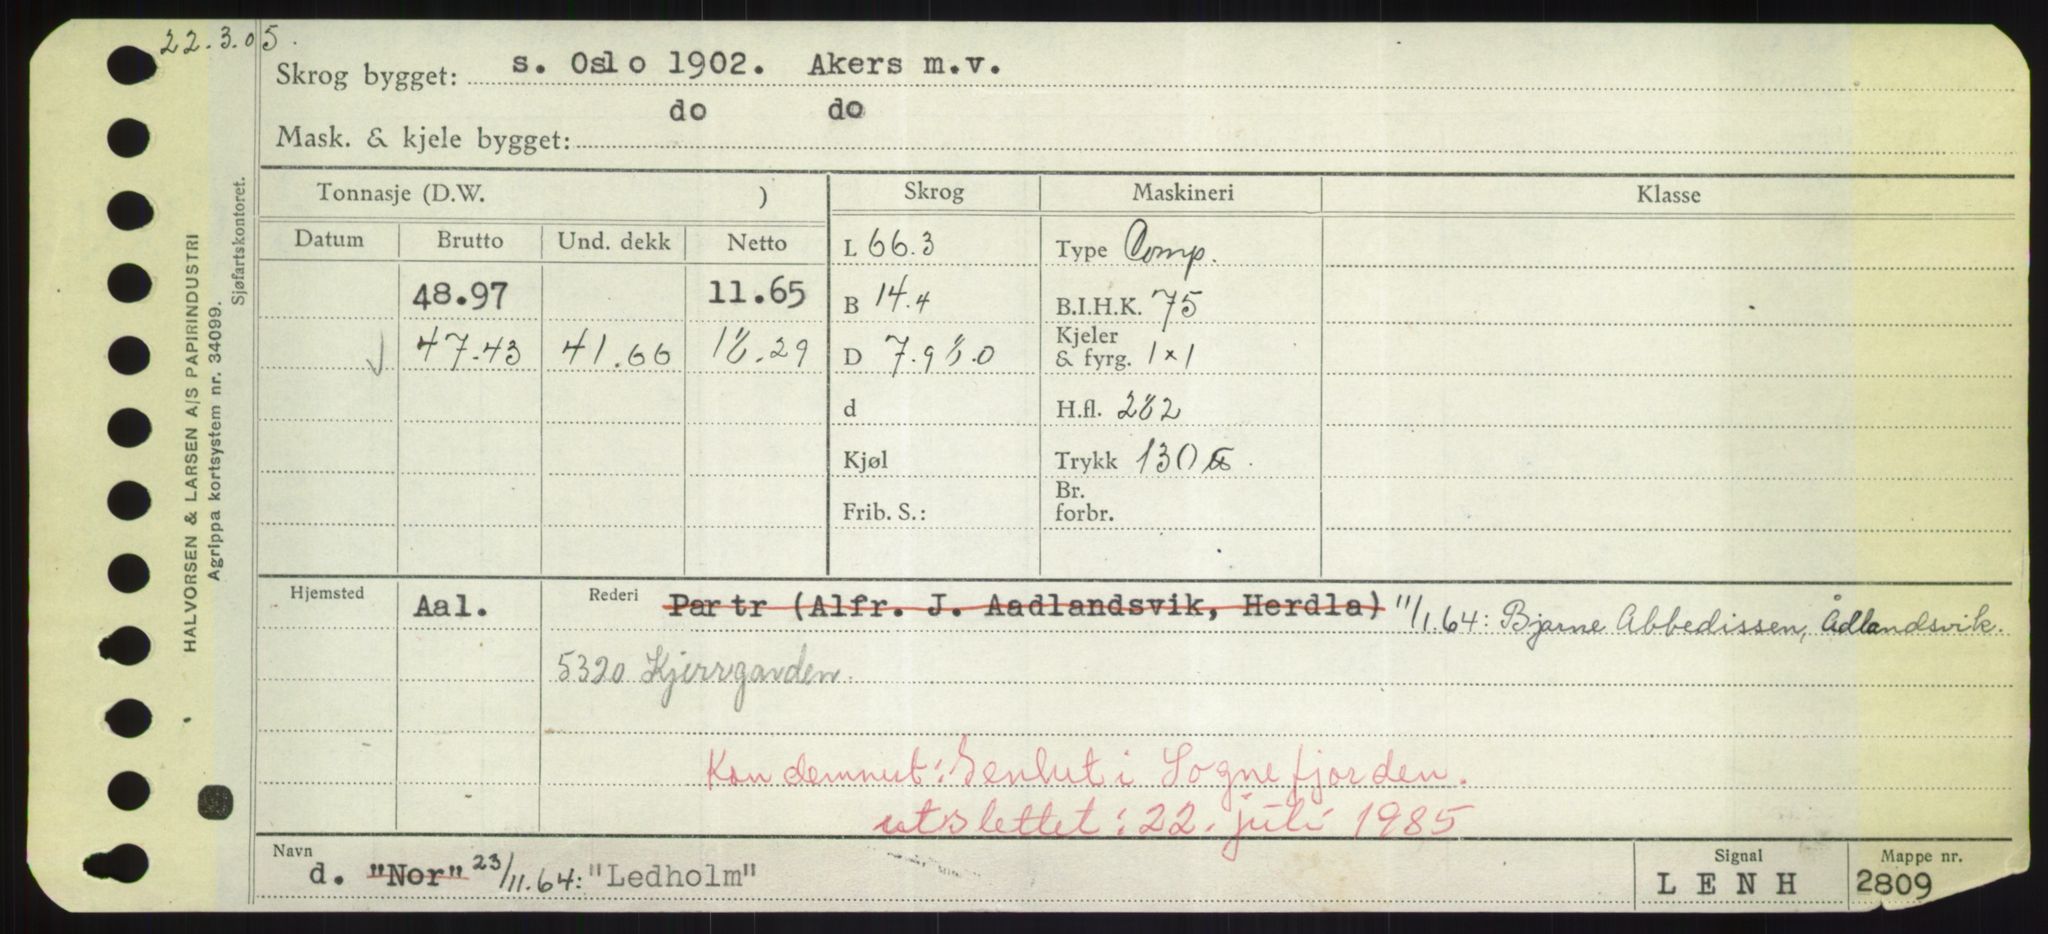 22.3.05.
Skrog bygget: s. Oslo 1902. Akers m.v.
do do
Mask. & kjele bygget:
Tonnasje (D.W. ) Skrog Maskineri Klasse
Datum Brutto Und. dekk Netto L 66.3 Type Comp.
48.97 11.65 B 14.4 B.I.H.K. 75
47.43 41.66 18.29 D 7.9 8.0 Kjeler & fyrg. 1x1
d H.fl. 282
Kjøl Trykk 130
Frib. S.: Br. forbr.
Hjemsted Aal. Rederi Partr (Alfr. J. Aadlandsvik, Herdla) 11/1.64: Bjarne Abbedissen, Ådlandsvik.
5320 Kjerrgarden.
Kondemnert: Senket i Sognefjorden.
utslettet: 22. juli 1985
Navn d. "Nor" 23/11.64: "Ledholm" Signal LENH Mappe nr. 2809
HALVORSEN & LARSEN A/S PAPIRINDUSTRI
Agrippa kortsystem nr. 34099.
Sjøfartskontoret.